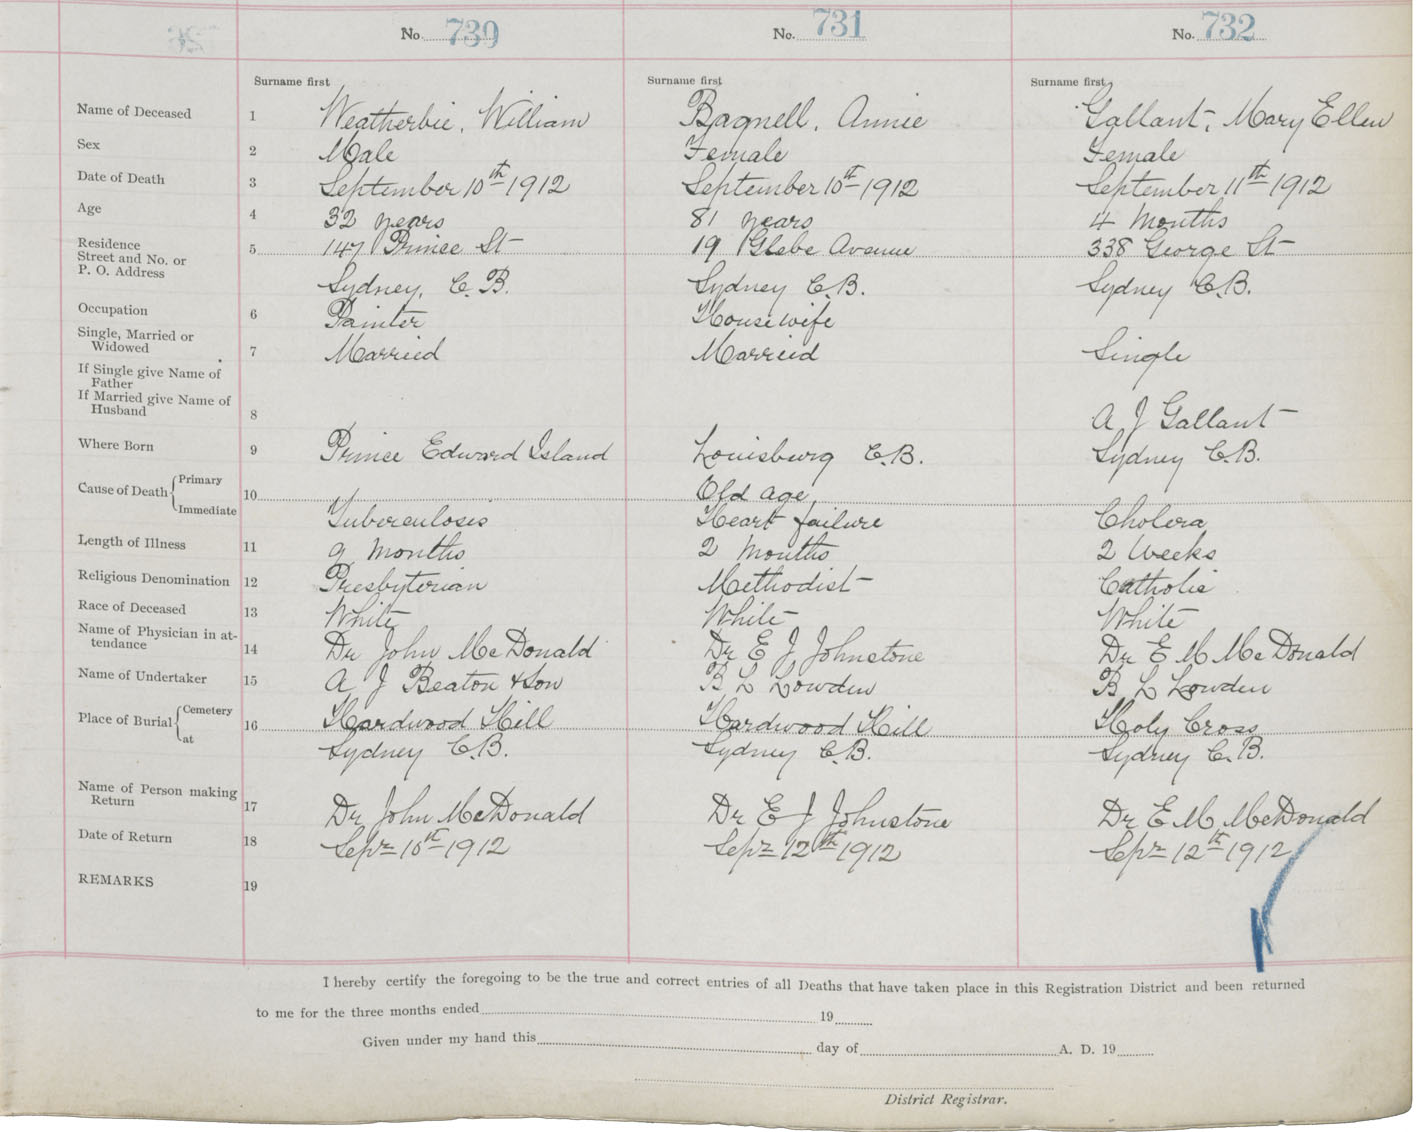 No. 739 No. 731 No. 732
Surname first Surname first Surname first
Name of Deceased 1 Weatherbie, William Bagnell, Annie Gallant, Mary Ellen
Sex 2 Male Female Female
Date of Death 3 September 10th 1912 September 10th 1912 September 11th 1912
Age 4 32 years 81 years 4 Months
Residence
Street and No. or 5 147 Prince St 19 Glebe Avenue 338 George St
P. O. Address
Sydney, C. B. Sydney C.B. Sydney C.B.
Occupation 6 Painter Housewife
Single, Married or
Widowed 7 Married Married Single
If Single give Name of
Father
If Married give Name of
Husband 8 A J Gallant
Where Born 9 Prince Edward Island Louisburg C.B. Sydney C.B.
Cause of Death Primary 10 Old age
Immediate Tuberculosis Heart failure Cholera
Length of Illness 11 9 Months 2 Months 2 Weeks
Religious Denomination 12 Presbyterian Methodist Catholic
Race of Deceased 13 White White White
Name of Physician in at-
tendance 14 Dr John McDonald Dr E J Johnstone Dr E M McDonald
Name of Undertaker 15 A J Beaton & Son B L Lowden B L Lowden
Place of Burial Cemetery 16 Hardwood Hill Hardwood Hill Holy Cross
at Sydney C.B. Sydney C.B. Sydney C.B.
Name of Person making
Return 17 Dr John McDonald Dr E J Johnstone Dr E M McDonald
Date of Return 18 Sept 10th 1912 Sept 12th 1912 Sept 12th 1912
REMARKS 19
I hereby certify the foregoing to be the true and correct entries of all Deaths that have taken place in this Registration District and been returned
to me for the three months ended 19
Given under my hand this day of A. D. 19
District Registrar.